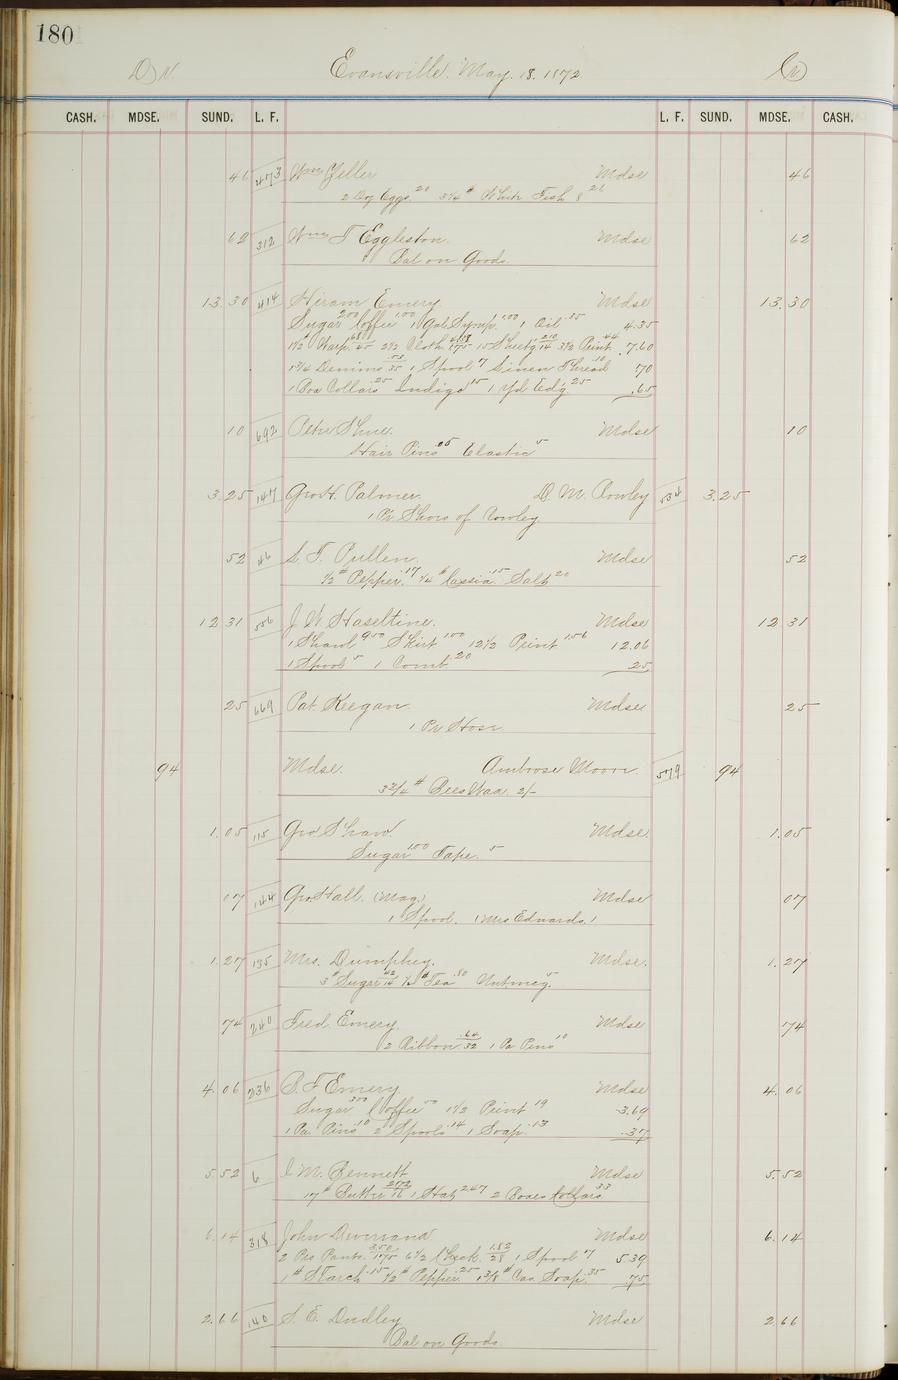 180
Dr. Evansville. May. 18. 1872 Cr
CASH. MDSE. SUND. L. F. L. F. SUND. MDSE. CASH.
46 473 Wm Zeller Mdse 46
2 Doz Eggs 20 3 1/4 # White Fish 8 26
62 312 Wm T Eggleston. Mdse 62
Bal on Goods
13.30 414 Hiram Emery Mdse 13.30
Sugar 2.00 Coffee 1.00 1 Gal Syrup 1.00 1 Oil .35 4.35
1 1/2 # Warp 45 2 1/2 Cloth 175 15 Sheetg 14 3 1/2 Print 44 7.60
1 3/4 Demins 35 1 Spool 7 Linen Thread 10 70
1 Box Collars 25 Indigo 15 1 yd Edg 25 .65
10 692 Peter Shue. Mdse 10
Hair Pins 05 Elastic 5
3.25 147 Geo H. Palmer. D. M. Rowley 534 3.25
1 Pr Shoes of Rowley
52 46 S. T. Pullen. Mdse 52
1/2 # Pepper .17 1/4 # Cassia .15 Salt 20
12 31 556 J W Haseltine. Mdse 12 31
1 Shawl 9.00 Skirt 1.00 12 1/2 Print 1.56 12.06
1 Spool 5 1 Comb 20 25
25 669 Pat. Keegan Mdse 25
1 Pr Hose
94 Mdse. Ambrose Moore. 579 94
3 3/4 # Bees Wax. 2/-
1.05 115 Geo Shaw. Mdse. 1.05
Sugar 1.00 Tape. 5
07 144 Geo. Hall. (Mag.) Mdse 07
1 Spool. (Mrs Edwards)
1.27 135 Mrs. Dumphey. Mdse. 1.27
3 # Sugar 42 14 1/2 # Tea .80 Nutmeg 5
74 240 Fred. Emery. Mdse 74
2 Ribbon .64 32 1 Pa Pins 10
4.06 236 B. F Emery Mdse 4.06
Sugar 3.00 Coffee 50 1 1/2 Print 19 3.69
1 Pa Pins 10 2 Spools .14 1 Soap .13 .37
5.52 6 C M. Bennett Mdse 5.52
17 # Butter 272 16 1 Hat 247 2 Boxes Collars 33
6.14 318 John Mdse 6.14
2 Prs Pants. 3.50 175 6 1/2 Check 1.82 28 1 Spool 7 5.39
1 # Starch .15 1/2 # Pepper .25 1 3/8 # Cas Soap .35 .75
2.66 140 S. E. Dudley Mdse 2.66
Bal on Goods.